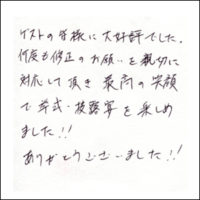 ゲストの皆様に大好評でした。
何度も修正のお願いを親切に
対応して頂き最高の笑顔
で挙式・披露宴を楽しめ
ました!!
ありがとうございました!!